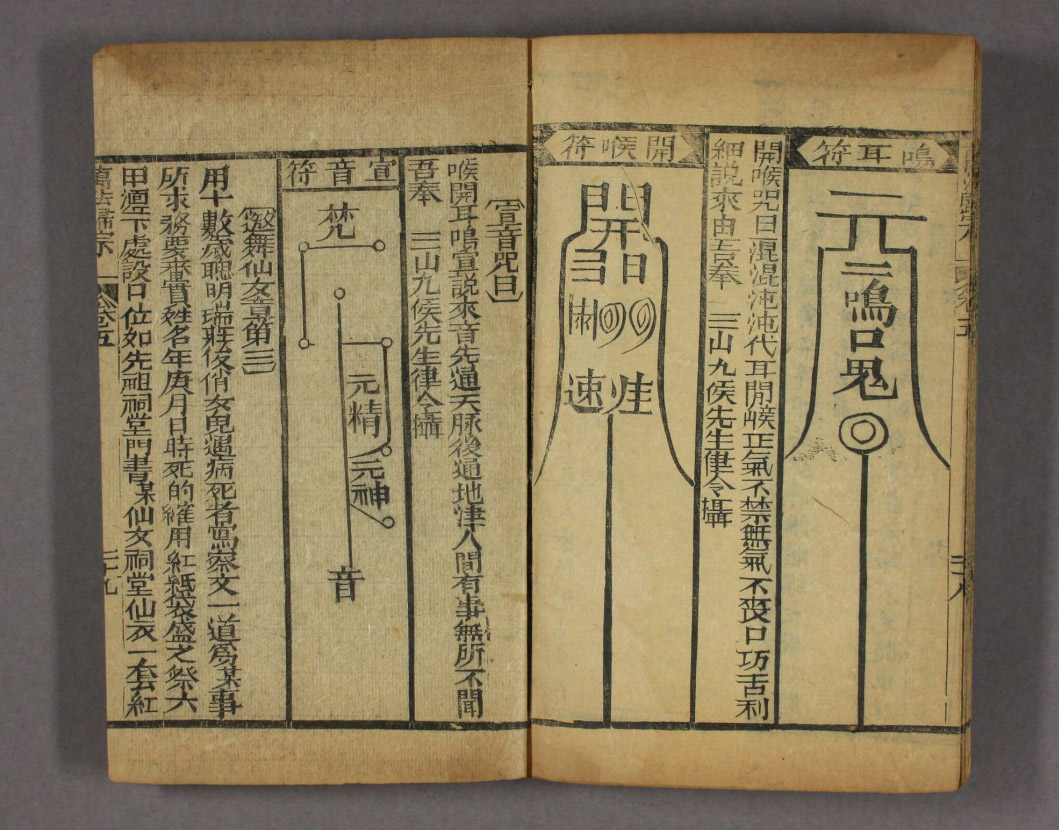 鳴耳符
元
二鳴口鬼
開喉咒曰混混沌沌代耳開喉正氣不禁無氣不喪口巧舌利
細說來由吾奉　三山九侯先生律令攝
開喉符
開
速
宣音咒曰
喉開耳鳴宣說來音先通天脉後通地津人間有事無所不聞
吾奉　三山九侯先生律令攝
宣音符
梵
元精
元神
音
邀舞仙女章第三
用十數歲聰明瑞莊俊俏女鬼遇病死者寫祭文一道為某事
所求務要審實姓名年庚月日時死的確用紅紙袋盛之祭六
甲壇下處設口位如先祖祠堂門書某仙女祠堂仙衣一套紅
萬法歸宗　卷五　二十九